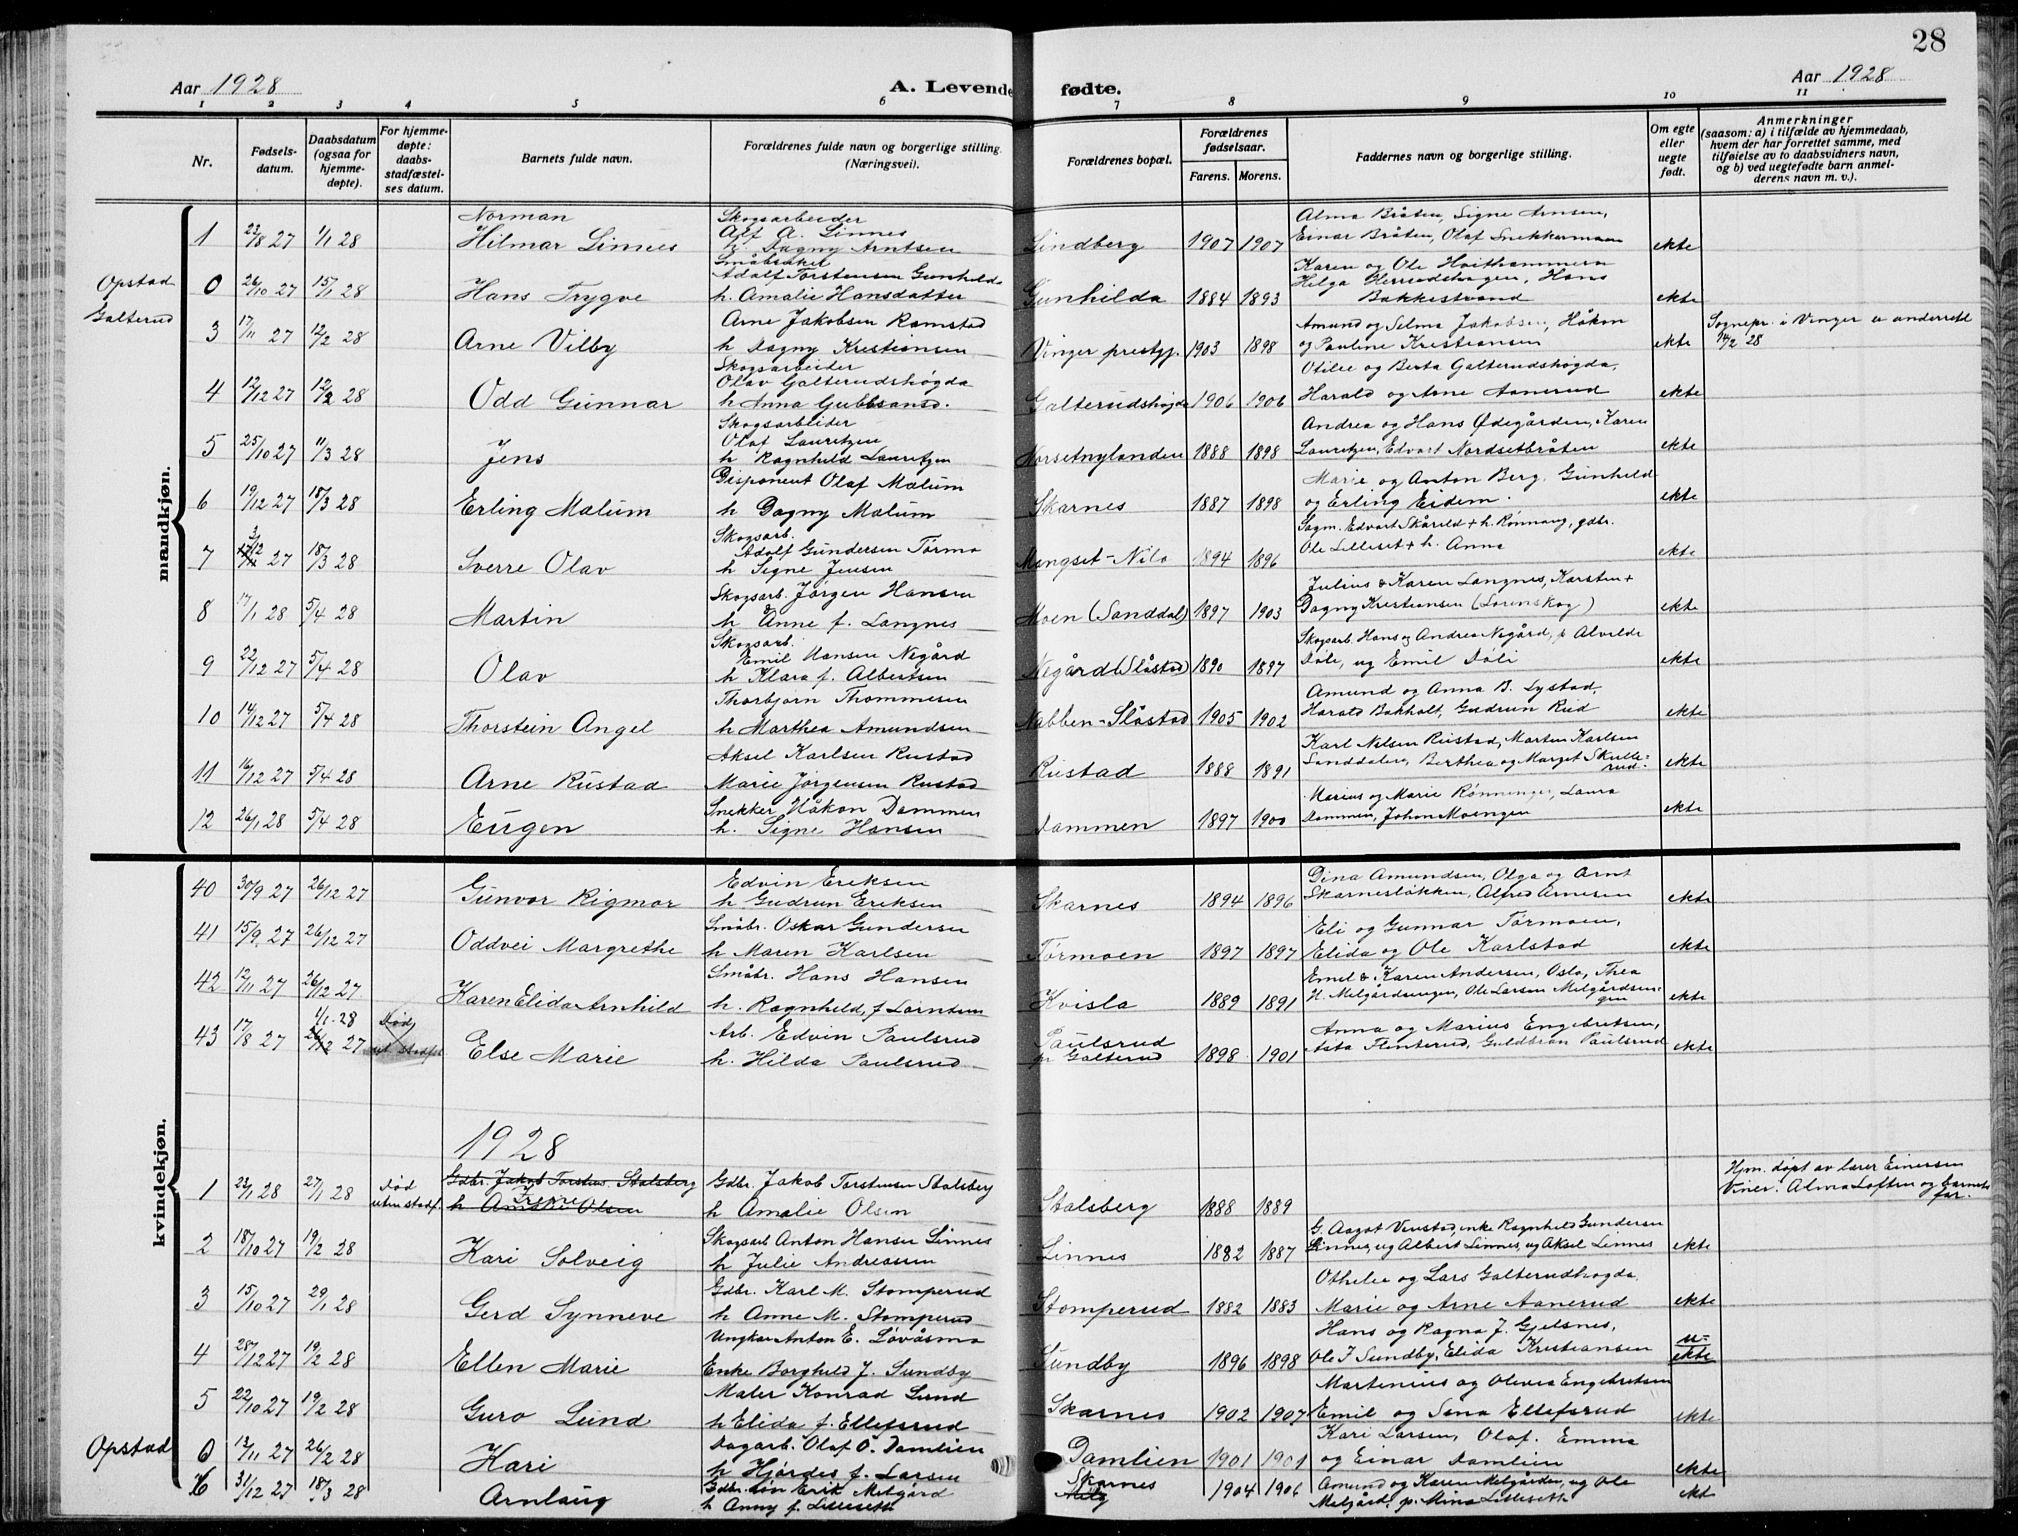 28
Aar 1928 A. Levende fødte. Aar 1928
1 2 3 4 5 6 7 8 9 10 11
Nr.
Fødsels-
datum.
Daabsdatum
(ogsaa for
hjemme-
døpte).
For hjemme-
døpte:
daabs-
stadfæstel-
ses datum.
Barnets fulde navn.
Forældrenes fulde navn og borgerlige stilling.
(Næringsvei).
Forældrenes bopæl.
Forældrenes
fødselsaar.
Farens. Morens.
Faddernes navn og borgerlige stilling.
Om egte
eller
uegte
født.
Anmerkninger
(saasom: a) i tilfælde av hjemmedaab,
hvem der har forrettet samme, med
tilføielse av to daabsvidners navn,
og b) ved uegtefødte barn anmel-
derens navn m. v.).
mandkjøn.
Norman Skogsarbeider Alma Bråten, Signe Arnsen,
1 23/8 27 1/1 28 Hilmar Linnes Alf A. Linnes Lindberg 1907 1907 Einar Bråten, Olaf Snekkermoen ekte
h. Dagny Arntsen
Småbruker
Opstad 0 26/10 27 15/1 28 Hans Trygve Adolf Torstensen Gunhilda Gunhilda 1884 1893 Karen og Ole Hvithammeren ekte
h. Amalie Hansdatter Helga Herredshagen, Hans
Bakkestrand
Galterud 3 17/11 27 12/2 28 Arne Vilby Arne Jakobsen Ramstad Vinger prestgj. 1903 1898 Amund og Selma Jakobsen, Håkon ekte Sognepr. i Vinger er underrett
h Dagny Kristiansen og Pauline Kristiansen 14/2 28
Skogsarbeider
4 12/12 27 12/2 28 Odd Gunnar Olav Galterudshøgda Galterudshøgda 1906 1906 Otilie og Berta Galterudshøgda, ekte
h Anna Gulbbransd. Harald og Arne Aanerud
Skogsarbeider
5 25/10 27 11/3 28 Jens Olaf Lauretzen Norsetnylanden 1888 1898 Andrea og Hans Ødegården, Karen ekte
h Ragnhild Lauretzen Lauretzen, Edvart Nordsetbråten
6 19/12 27 18/3 28 Erling Mælum Disponent Olaf Mælum Skarnes 1887 1898 Marie og Anton Berg, Gunhild ekte
h Dagny Mælum og Erling Eidem.
Skogsarb.
7 2/12 27 18/3 28 Sverre Olav Adolf Gundersen Tørmo Mangset-Nilo 1894 1896 Sagm. Edvart Skårild + h. Rønnaug, gdbr. ekte
h Signe Jensen Ole Lilleset + h. Anna
8 17/1 28 5/4 28 Martin Skogsarb. Jørgen Hansen Moen (Sanddal) 1897 1903 Julius & Karen Langnes, Karsten + ekte
h Anne f. Langnes Dagny Kristiansen (Lørenskog)
Skogsarb.
9 22/12 27 5/4 28 Olav Emil Hansen Negård Negård (Slåstad) 1890 1897 Skogsarb. Hans og Andrea Negård, p. Alvilde ekte
h Klara f. Albertsen Døli, ug Emil Døli
10 14/12 27 5/4 28 Thorstein Angel Thorbjørn Thommesen Nabben-Slåstad 1905 1902 Amund og Anna B. Lystad, ekte
h Marthea Amundsen Harald Bakholt, Gudrun Rud
11 16/12 27 5/4 28 Arne Rustad Aksel Karlsen Rustad Rustad 1888 1891 Karl Nilsen Rustad, Morten Karlsen ekte
Marie Jørgensen Rustad Sanddalen, Berthea og Marget Skulle-
rud.
12 26/1 28 5/4 28 Eugen Snekker Håkon Dammen Dammen 1897 1900 Marius og Marie Rønningen, Laura ekte
h. Signe Hansen Dammen, Johan Moengen
kvindekjøn.
40 30/9 27 26/12 27 Gunvor Rigmor Edvin Eriksen Skarnes 1894 1896 Dina Amundsen, Olga og Arnt ekte
h Gudrun Eriksen Skarnesløkken, Alfred Arnesen
41 15/9 27 26/12 27 Oddvei Margrethe Småbr. Oskar Gundersen Tørmoen 1897 1897 Eli og Gunnar Tørmoen, ekte
h Maren Karlsen Elida og Ole Karlstad
42 12/11 27 26/12 27 Karen Elida Arnhild Småbr. Hans Hansen Kvisla 1889 1891 Emil & Karen Andersen, Oslo, Thea ekte
h. Ragnhild f Lorntsen H. Melgårdsengen, Ole Larsen Melgårdsen-
gen
1/1 28 Død
43 17/8 27 26/12 27 Else Marie Arb. Edvin Paulsrud Paulsrud 1898 1901 Anna og Marius Engebretsen, ekte
h. Hilda Paulsrud pr Galterud Asta Flenterud, Guldbran Paulsrud
1928
1 22/1 28 27/1 28 død Gdbr. Jakob Torstens. Stalsberg Gdbr. Jakob Torstensen Stalsberg Stalsberg 1888 1889 Hjm. døpt av lærer Einersen
uten stadf. Irene h Amalie Olsen h Amalie Olsen Viner. Alma Loften og barnets
far.
2 18/10 27 19/2 28 Kari Solveig Skogsarb Anton Hansen Linnes Linnes 1882 1887 G. Aagot Venstad, enke Ragnhild Gundersen ekte
h Julie Andreassen Linnes, ug Albert Linnes, ug Aksel Linnes
3 15/10 27 29/1 28 Gerd Synneve Gdbr. Karl M. Stomperud Stomperud 1882 1883 Othelie og Lars Galterudhøgda ekte
h Anne M. Stomperud Marie og Arne Aanerud
4 28/12 27 19/2 28 Ellen Marie Ungkar Anton E. Lövåsmo Sundby 1896 1898 Hans og Ragna J. Gjelsnes, u-
Enke Borghild J. Sundby Ole J Sundby, Elida Kristiansen ekte
5 22/10 27 19/2 28 Guro Lund Maler Konrad Lund Skarnes 1902 1907 Martenius og Olivia Engebretsen ekte
h Elida f. Ellefsrud Emil og Sina Ellefsrud
Opstad 0 13/11 27 26/2 28 Kari Dagarb. Olaf O. Damlien Damlien 1901 1901 Kari Larsen, Olaf. Emma ekte
h Hjørdis f. Larsen og Einar Damlien
31/12 27 18/3 28 Arnlaug Gdbr. søn Erik Melgård Skarnes 1904 1906 Amund og Karen Melgården, ug Ole ekt
h Anny f. Lilleseth Melgård, p. Mina Lilleseth